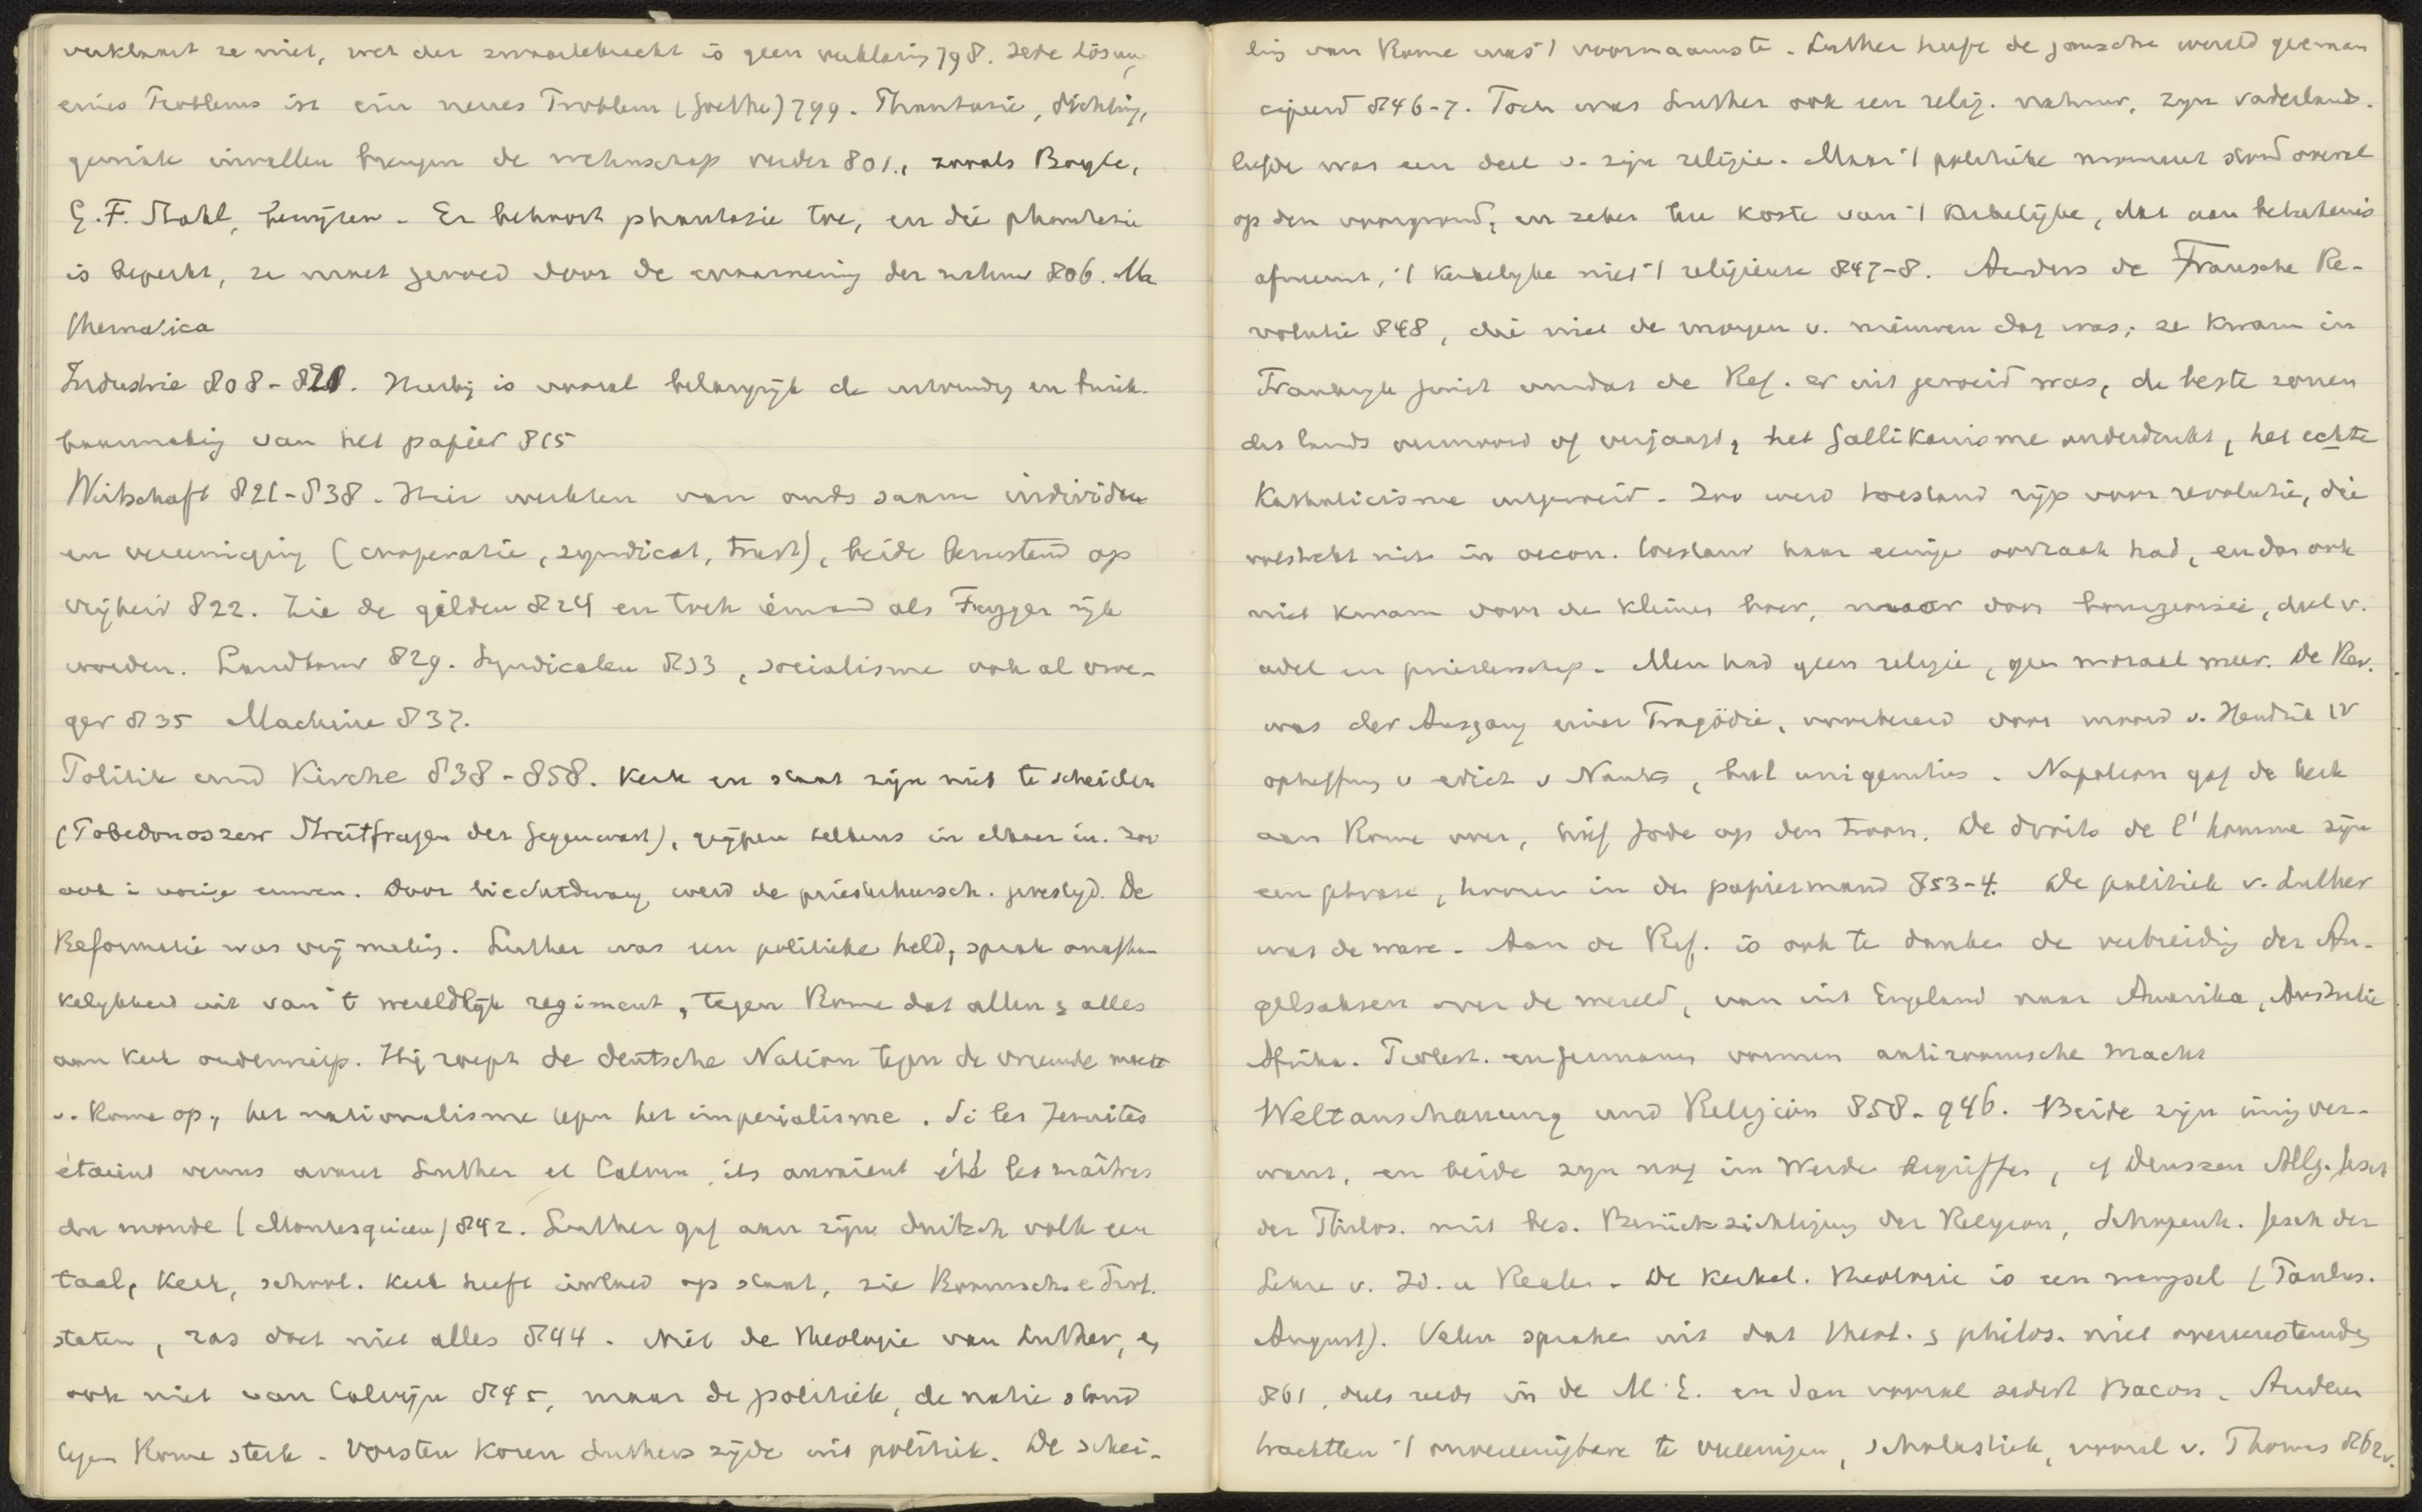 verklaart ze niet, wet der zwaartekracht is geen verklaring 798. Jede Lösung
eines Problems ist ein neues Problem (Goethe) 799. Phantasie, dichting,
geniale invallen brengen de wetenschap verder 801., zooals Boyle,
G. F. Stahl, bewijzen. Er behoort phantasie toe, en die phantasie
is beperkt, ze moet gevoed door de waarneming der natuur 806. Ma
thematica
Industrie 808-820. Hierbij is vooral belangrijk de uitvinding en bruik-
baarmaking van het papier 815
Wirtschaft 821-838. Hier werkten van ouds saam individu
en vereeniging (cooperatie, syndicat, trust), beide berustend op
vrijheid 822. Zie de gilden 824 en toch iemand als Fugger rijk
worden. Landbouw 829. Syndicaten 833, socialisme ook al vroe-
ger 835 Machine 837.
Politik und Kirche 838-858. Kerk en staat zijn niet te scheiden
(Pobedonoszew Streitfragen der Gegenwart), grijpen telkens in elkaer in. Zoo
ook i vorige eeuwen. Door biechtdwang werd de priesterheersch. gevestigd. De
Reformatie was vrij making. Luther was een politieke held, sprak onafhan
kelykheid uit van 't wereldlijk regiment, tegen Rome dat allen & alles
aan kerk onderwierp. Hij roept de deutsche Nation tegen de vreemde macht
v. Rome op, het nationalisme tegen het imperialisme. Si les Jesuites
étaient venus avant Luther et Calvin, ils auraient été les maîtres
du monde (Montesquieu) 842. Luther gaf aan zijn duitsch volk een
taal, Kerk, school. Kerk heeft invloed op staat, zie Roomsch e Prot.
staten, ras doet niet alles 844. Niet de theologie van Luther, en
ook niet van Calvijn 845, maar de politiek, de natie stond
tegen Rome sterk. Vorsten kozen Luthers zijde uit politiek. De schei-
ding van Rome was 't voornaamste. Luther heeft de gansche wereld geeman
cipeerd 846-7. Toch was Luther ook een relig. natuur, zijn vaderlands.
liefde was een deel v. zijn religie. Maar 't politieke moment stond overal
op den voorgrond, en zeker ten koste van 't kerkelijke, dat aan beteekenis
afneemt, 't kerkelyke niet 't religieuse 847-8. Anders de Fransche Re-
volutie 848, die niet de morgen v. nieuwen dag was; ze kwam in
Frankryk juist omdat de Ref. er uit geroeid was, de beste zonen
des lands vermoord of verjaagd, het Gallikanisme onderdrukt, het echte
Katholicisme uitgeroeid. Zoo werd toestand rijp voor revolutie, die
volstrekt niet in oecon. toestand haar eenige oorzaak had, en dan ook
niet kwam door de kleine boer, maar door bourgeoisie, deel v.
adel en priesterschap. Men had geen religie, geen moraal meer. De Rev.
was der Ausgang einer Tragödie, voorbereid door moord v. Hendrik IV
opheffing v edict v Nantes, bul unigenitus. Napoleon gaf de kerk
aan Rome over, op den troon. De droits de l'homme zijn
een phrase, hooren in de papiermand 853-4. De politiek v. Luther
was de ware. Aan de Ref. is ook te danken de verbreiding der An-
gelsaksen over de wereld, van uit Engeland naar Amerika, Australie
Afrika. Protest. en Germanen vormen antiroomsche macht
Weltanschauung und Religion 858-946. Beide zijn innig ver-
want, en beide zijn nog im Werden begriffen, cf Deussen Allg. Gesch
der Philos. mit bes. Berücksichtigung der Religion, Schopenh. Gesch der
Lehre v. Id. u Realen. De kerkel. theologie is een mengsel (Paulus.
August). Velen spraken uit dat theol. & philos. niet overeenstemden
861, deels reeds in de M.E. en dan vooral sedert Bacon. Anderen
trachtten 't onvereenigbare te vereenigen, scholastiek, vooral v. Thomas 862v.